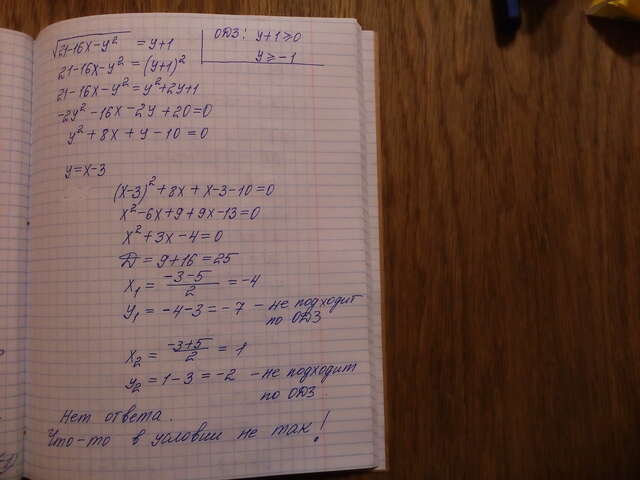 √21-16x-y² = y+1
ОДЗ: y+1⩾0
y⩾-1
21-16x-y² = (y+1)²
21-16x-y² = y²+2y+1
-2y²-16x-2y+20=0
y²+8x+y-10=0
y=x-3
(x-3)²+8x+x-3-10=0
x²-6x+9+9x-13=0
x²+3x-4=0
D=9+16=25
x₁ = (-3-5)/2 = -4
y₁ = -4-3 = -7 - не подходит
по ОДЗ
x₂ = (-3+5)/2 = 1
y₂ = 1-3 = -2 - не подходит
по ОДЗ
Нет ответа.
Что-то в условии не так!